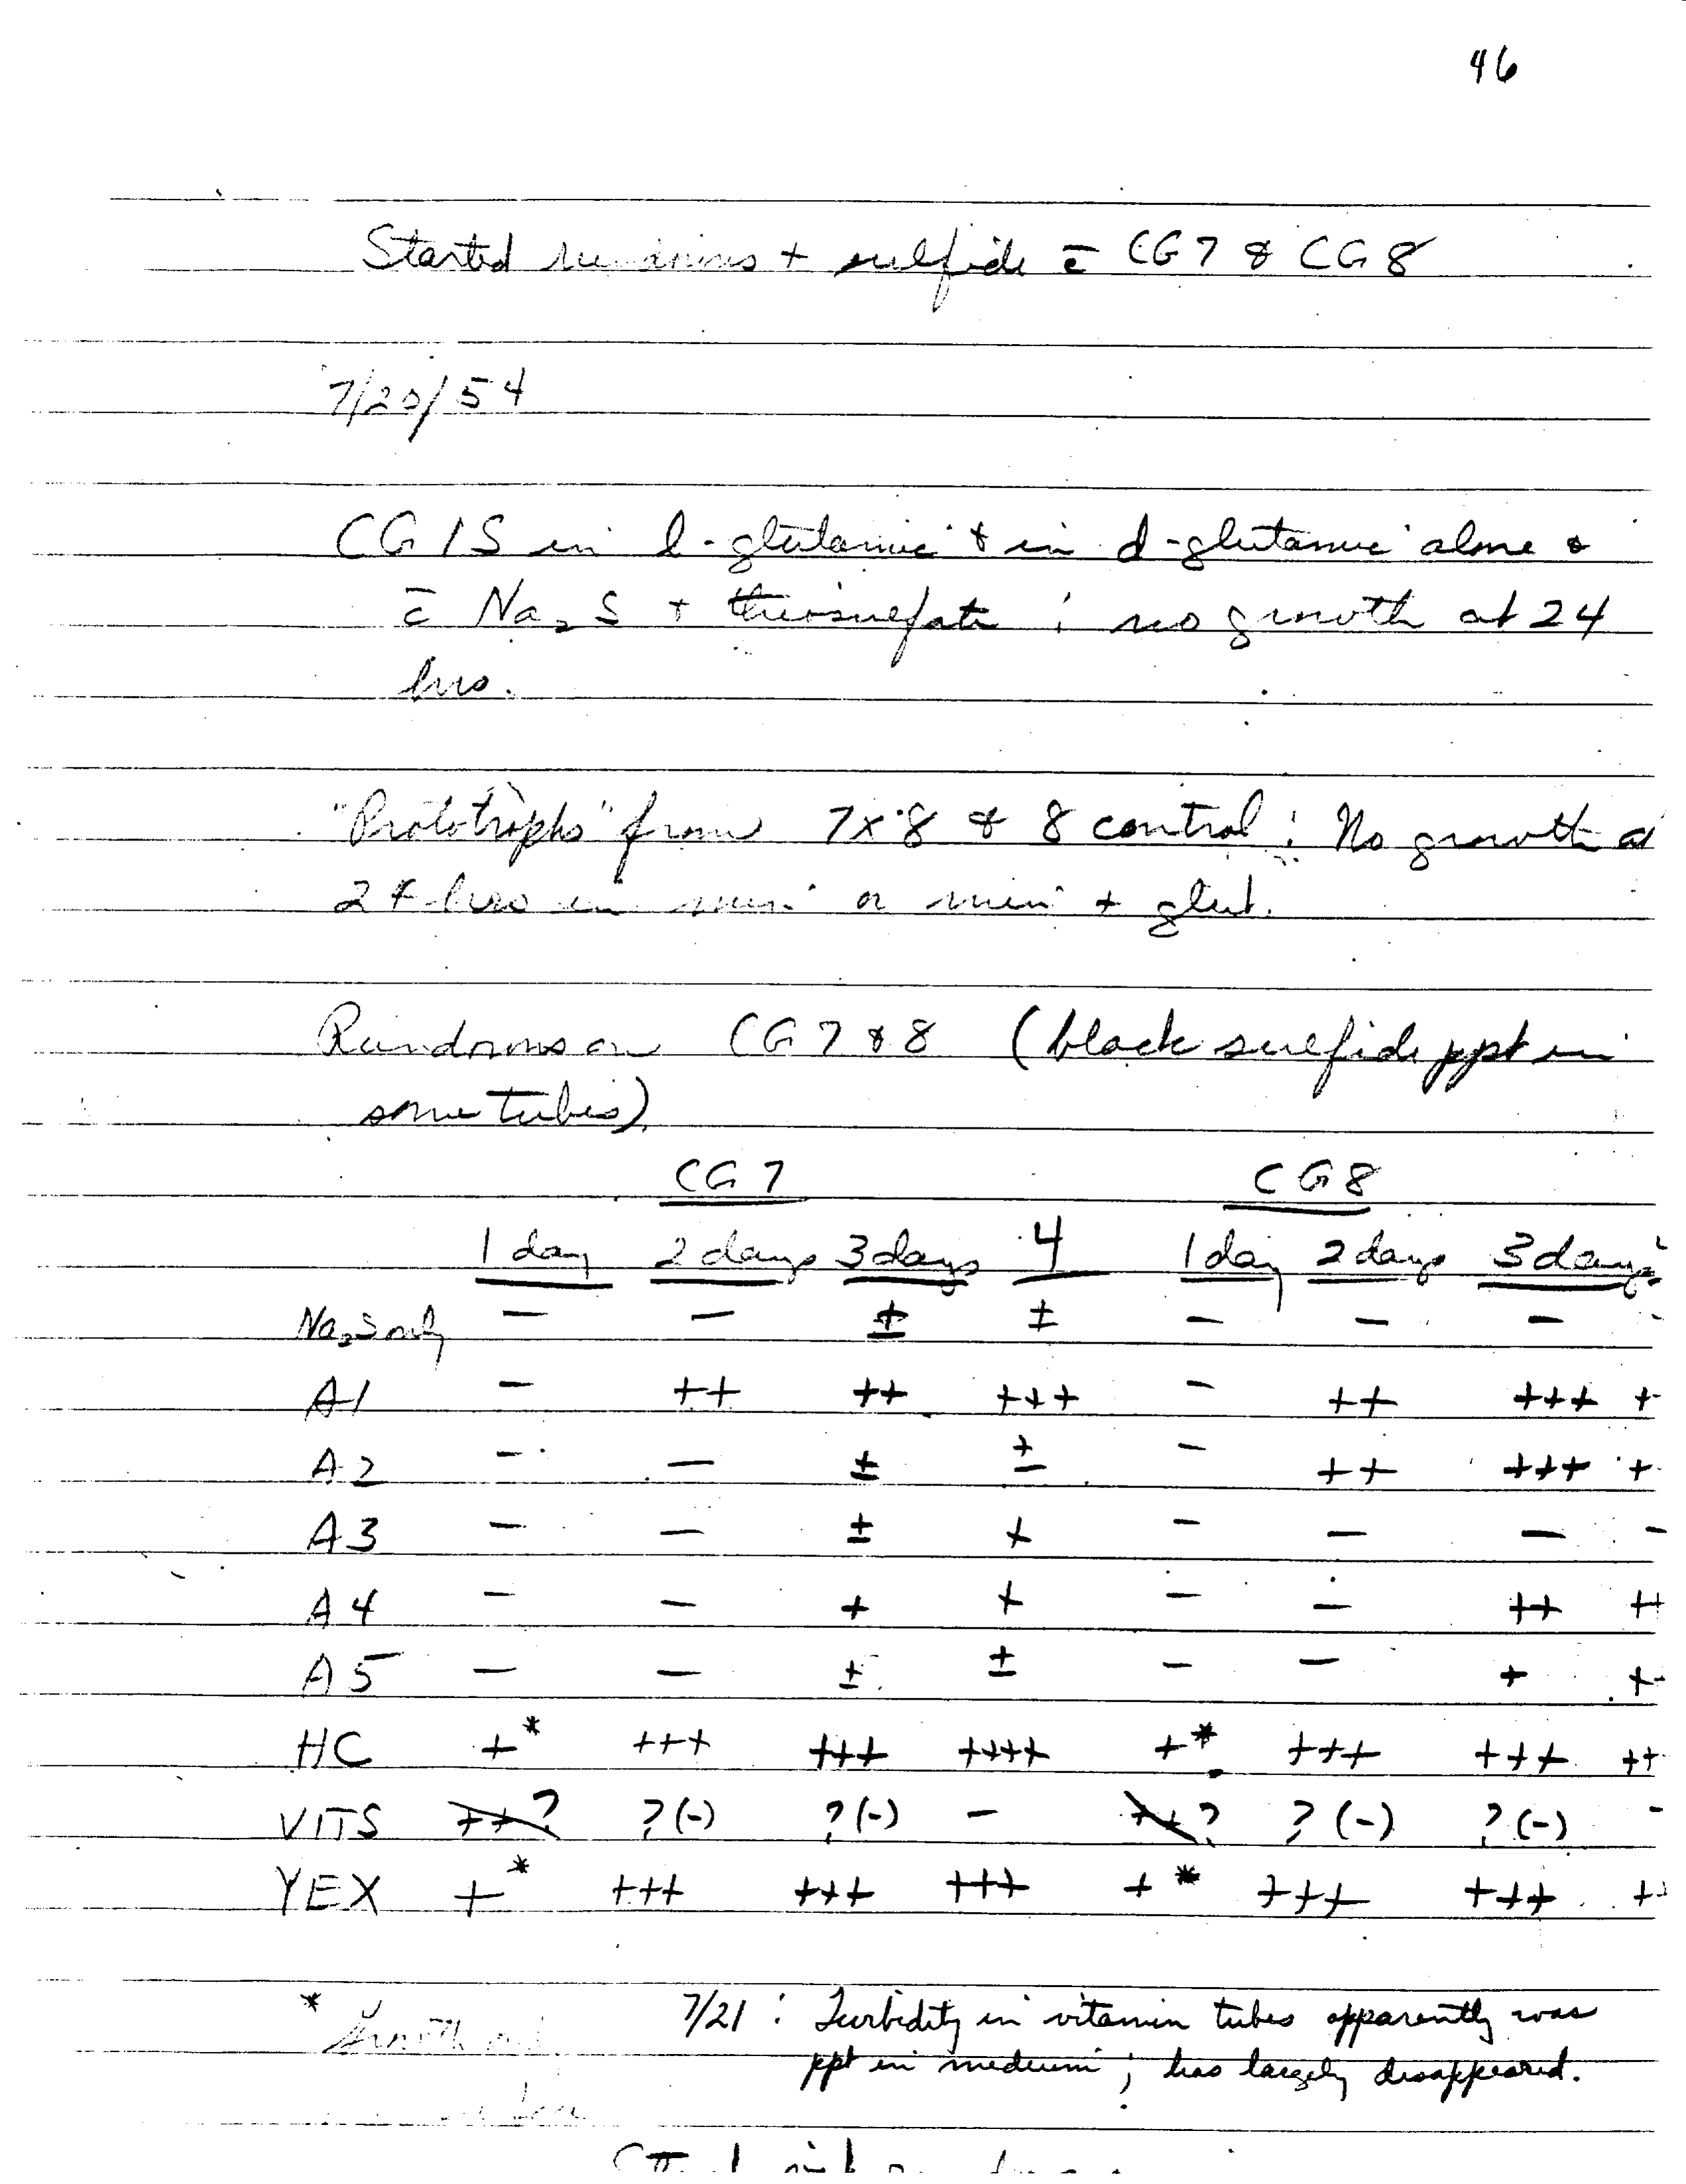 46
Started randoms + sulfide c̄ CG7 & CG8
7/20/54
CG15 in l-glutamic & in d-glutamic alone &
c̄ Na₂S + thiosulfate : no growth at 24
hrs.
"Prototrophs" from 7x8 & 8 control : No growth at
24 hrs in min. or min + glut.
Randoms on CG7 & 8 (black sulfide ppt in
some tubes).
CG7 CG8
1 day 2 days 3 days 4 1 day 2 days 3 days
Na₂S only - - ± ± - - - -
A1 - ++ ++ +++ - ++ +++ +
A2 - - ± ± - ++ +++ +
A3 - - ± + - - - -
A4 - - + + - - ++ ++
A5 - - ± ± - - + +
HC +* +++ +++ ++++ +* +++ +++ ++
VITS ++? ?(-) ?(-) - ++? ?(-) ?(-) -
YEX +* +++ +++ +++ +* +++ +++ +
* Growth only
7/21 : Turbidity in vitamin tubes apparently was
ppt in medium ; has largely disappeared.